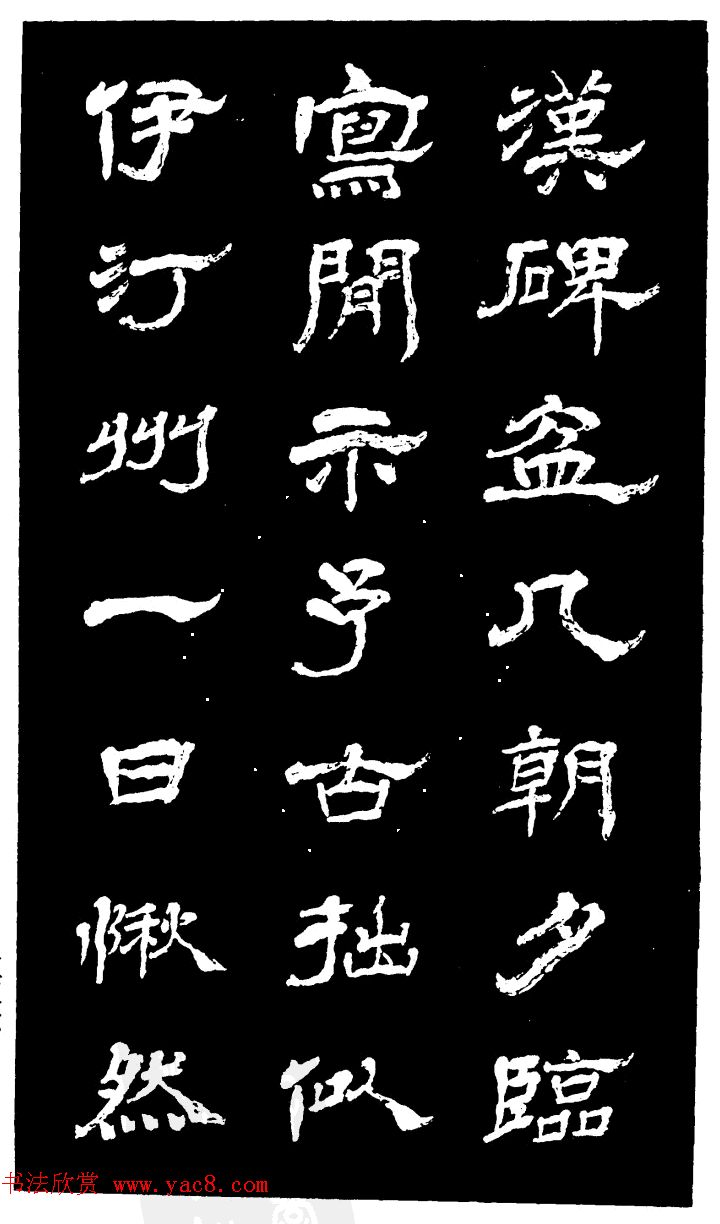 漢碑盈几朝夕臨
寫閒示予古拙似
伊汀州一日愀然
书法欣赏 www.yac8.com